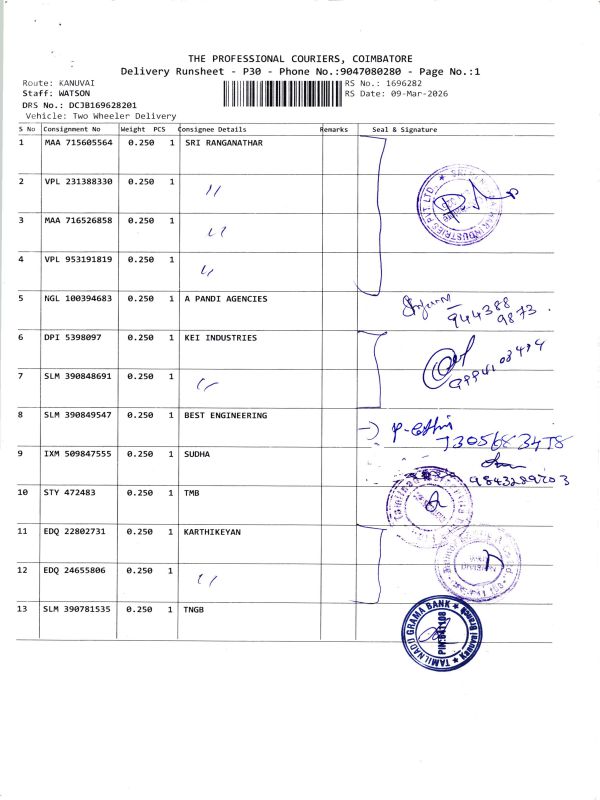 THE PROFESSIONAL COURIERS, COIMBATORE
Delivery Runsheet - P30 - Phone No.:9047080280 - Page No.:1
Route: KANUVAI
RS No.: 1696282
Staff: WATSON
RS Date: 09-Mar-2026
DRS No.: DCJB169628201
Vehicle: Two Wheeler Delivery
S No Consignment No Weight PCS Consignee Details Remarks Seal & Signature
1 MAA 715605564 0.250 1 SRI RANGANATHAR
2 VPL 231388330 0.250 1 "
3 MAA 716526858 0.250 1 "
4 VPL 953191819 0.250 1 "
INDUSTRIES PVT. LTD.
5 NGL 100394683 0.250 1 A PANDI AGENCIES
944388
9873
6 DPI 5398097 0.250 1 KEI INDUSTRIES
7 SLM 390848691 0.250 1 "
8 SLM 390849547 0.250 1 BEST ENGINEERING
9 IXM 509847555 0.250 1 SUDHA
9843289203
10 STY 472483 0.250 1 TMB
11 EDQ 22802731 0.250 1 KARTHIKEYAN
12 EDQ 24655806 0.250 1 "
13 SLM 390781535 0.250 1 TNGB
TAMIL NADU GRAMA BANK
Kanuvai Branch